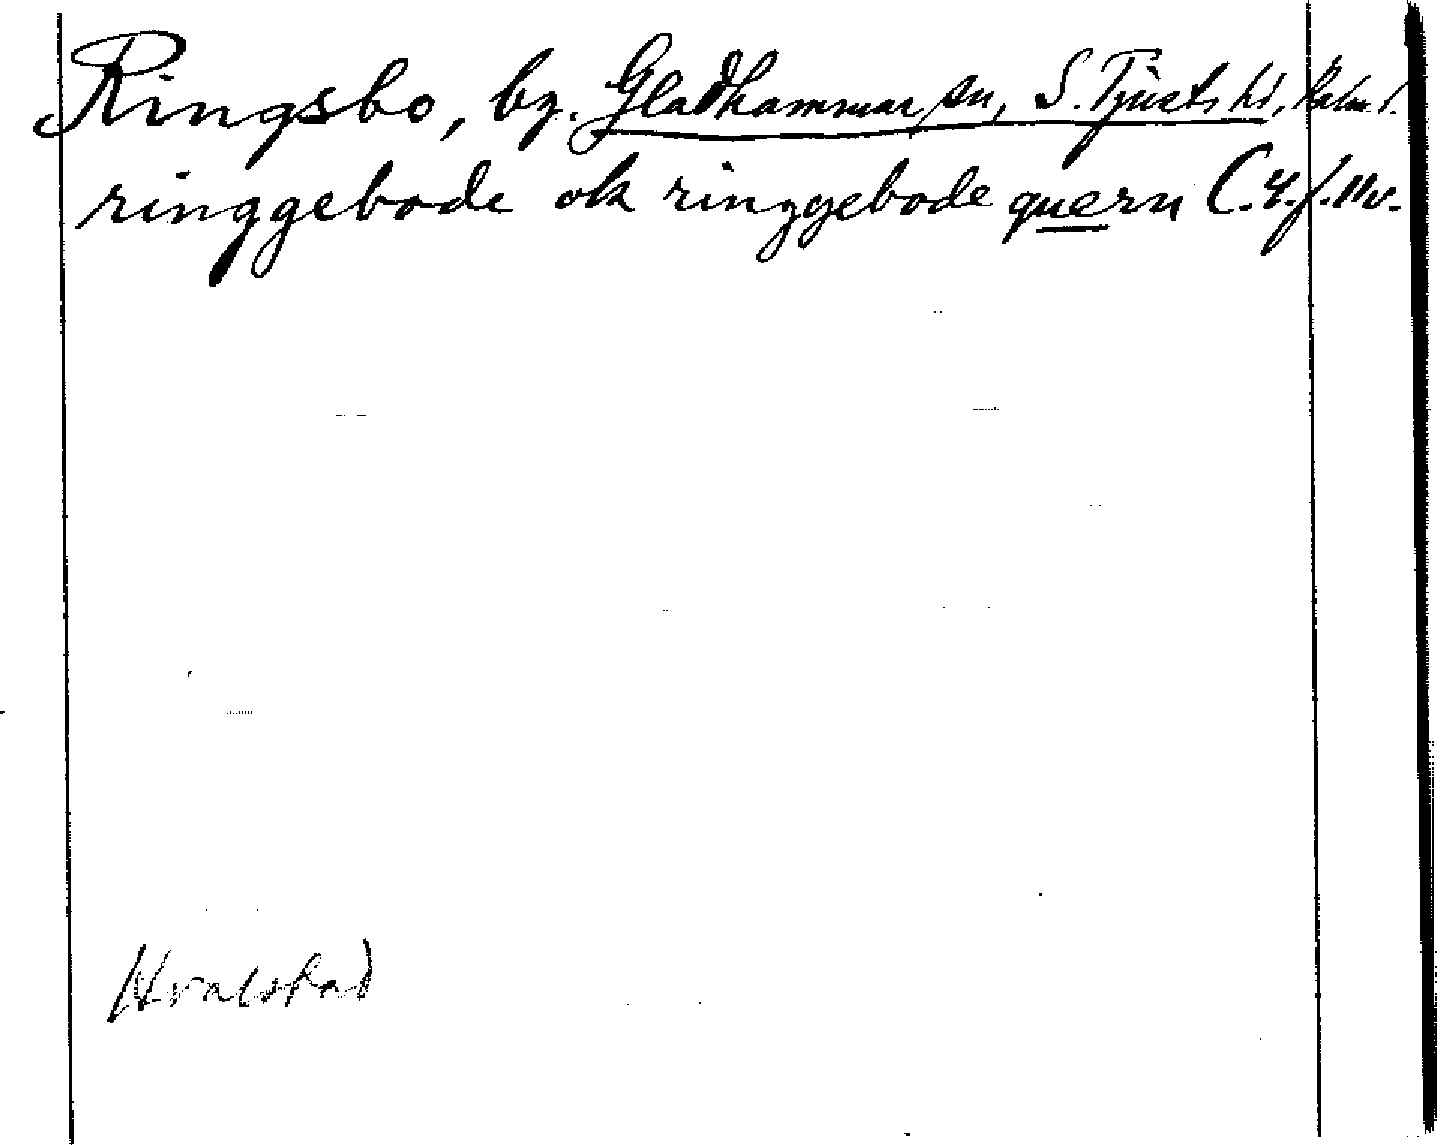 Ringsbo, by. Gladhammar sn, S. Tjusts hd, Kalm. l.
ringgebode ok ringgebode quern C. 4. f. 11 v.
Hvalstad